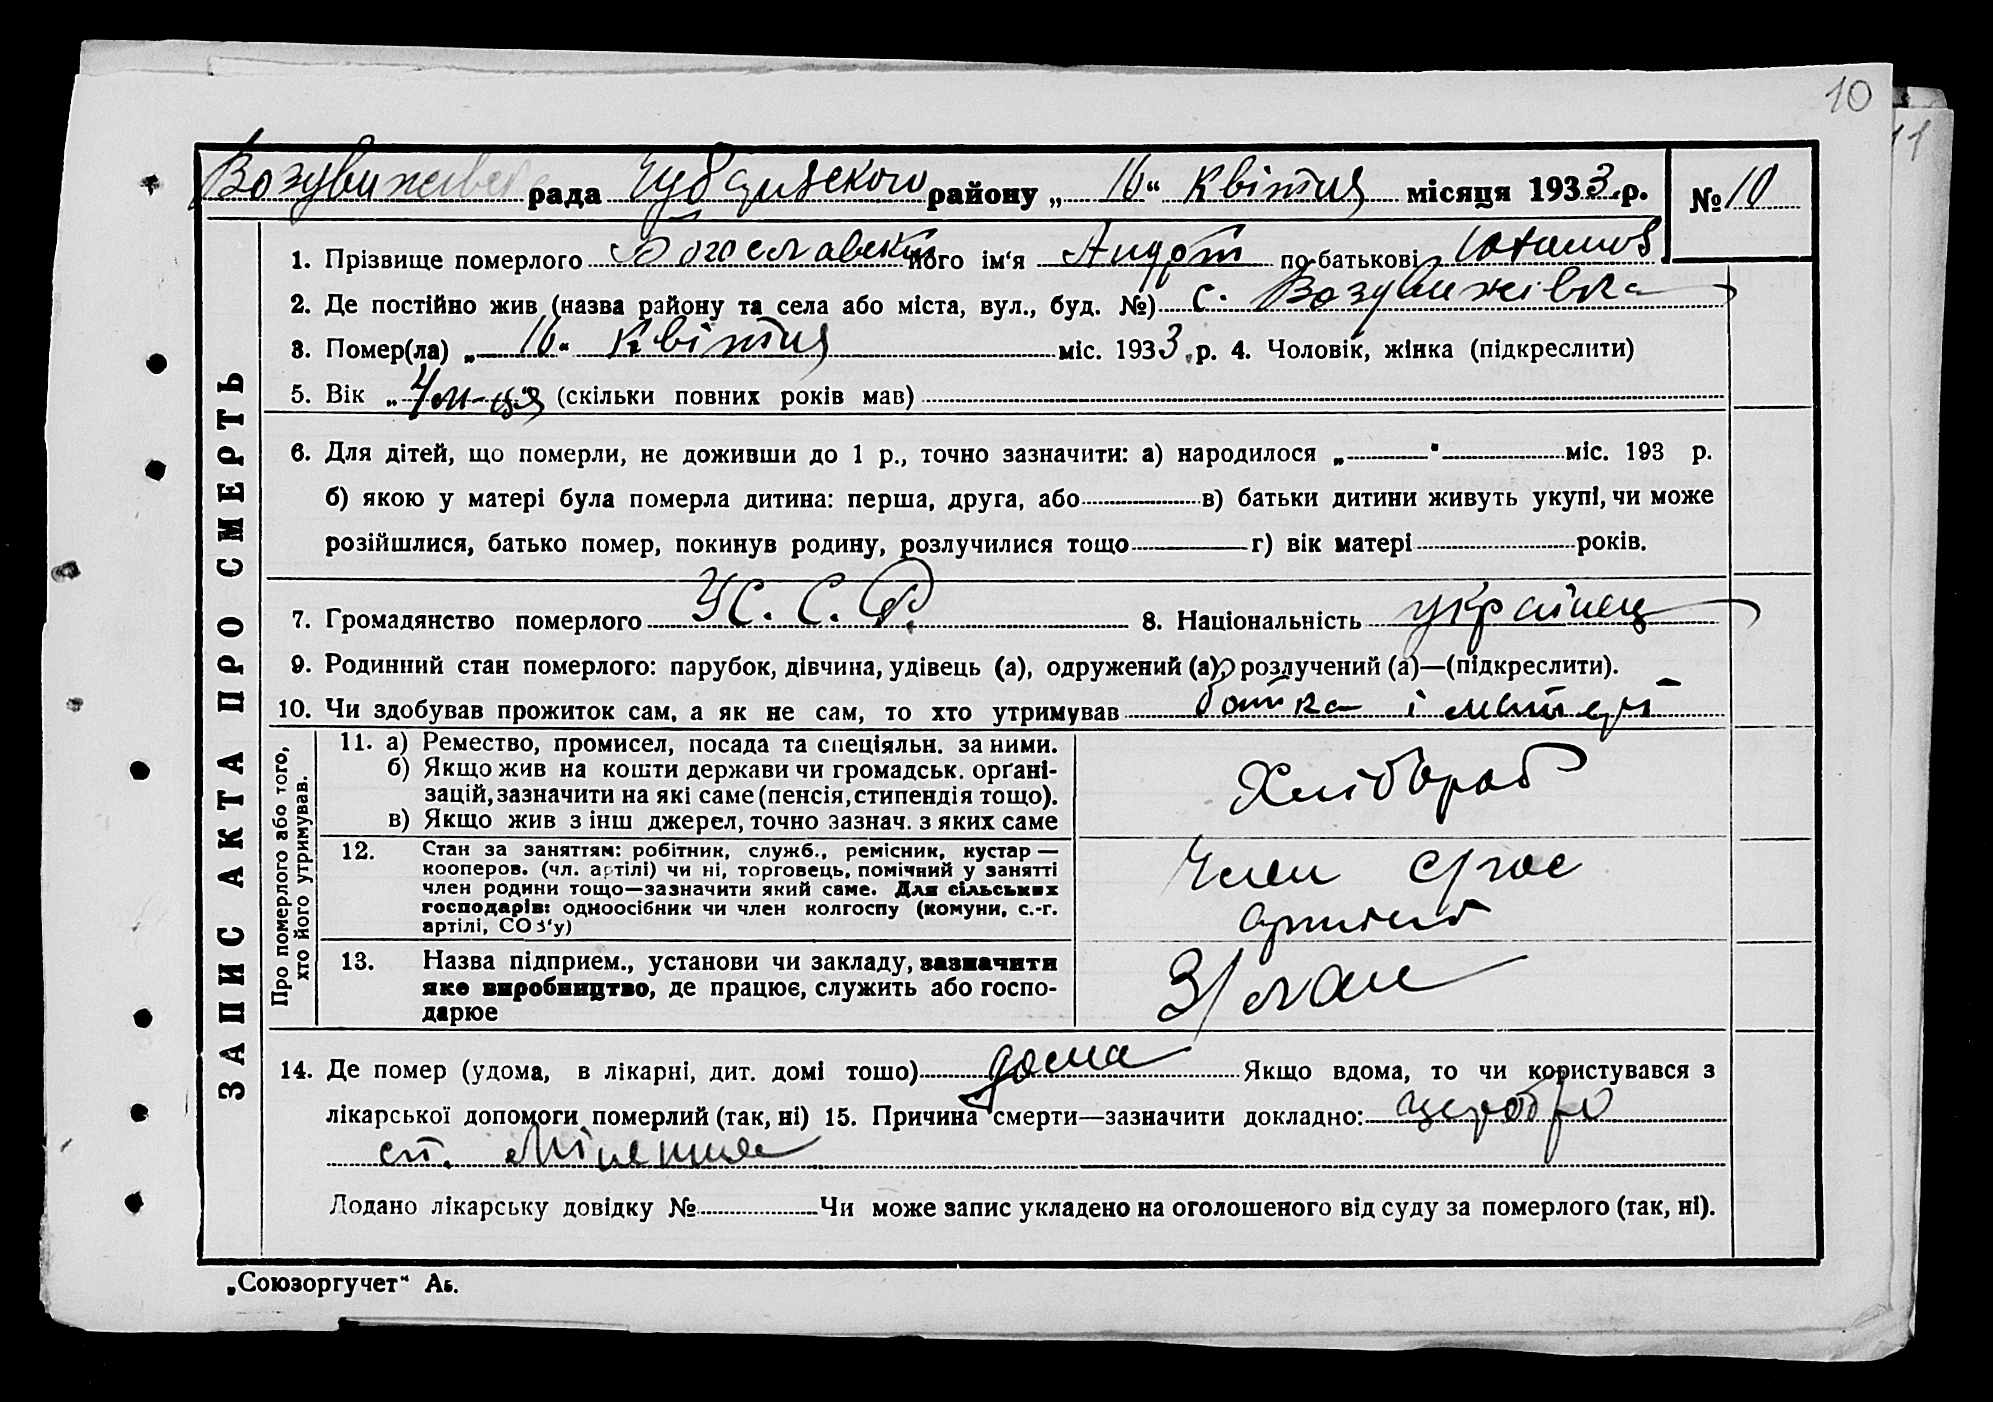 10
11
Возувижівська рада Чубарівського району „ 16 “ Квітня місяця 1933 р. № 10
1. Прізвище померлого Богославський його ім'я Андрій по батькові
2. Де постійно жив (назва району та села або міста, вул., буд. №) с. Возувижівка
3. Помер(ла) „ 16 “ Квітня міс. 1933 р. 4. Чоловік, жінка (підкреслити)
5. Вік „ 4 м-ця (скільки повних років мав)
6. Для дітей, що померли, не доживши до 1 р., точно зазначити: а) народилося „ “ міс. 193 р.
б) якою у матері була померла дитина: перша, друга, або в) батьки дитини живуть укупі, чи може
розійшлися, батько помер, покинув родину, розлучилися тощо г) вік матері років.
7. Громадянство померлого У.С.С.Р. 8. Національність українец
9. Родинний стан померлого: парубок, дівчина, удівець (а), одружений (а), розлучений (а)—(підкреслити).
10. Чи здобував прожиток сам, а як не сам, то хто утримував батька і матері
ЗАПИС АКТА ПРО СМЕРТЬ
Про померлого або того,
хто його утримував.
11. а) Ремество, промисел, посада та спеціяльн. за ними.
б) Якщо жив на кошти держави чи громадськ. орґані-
зацій, зазначити на які саме (пенсія, стипендія тощо).
в) Якщо жив з інш джерел, точно зазнач. з яких саме
Хлібороб
12. Стан за заняттям: робітник, служб., ремісник, кустар —
кооперов. (чл. артілі) чи ні, торговець, помічний у занятті
член родини тощо—зазначити який саме. Для сільських
господарів: одноосібник чи член колгоспу (комуни, с.-г.
артілі, СОЗ'у)
Член с/гос
артілі
13. Назва підприєм., установи чи закладу, зазначити
яке виробництво, де працює, служить або госпо-
дарює
14. Де помер (удома, в лікарні, дит. домі тошо) дома Якщо вдома, то чи користувався з
лікарської допомоги померлий (так, ні) 15. Причина смерти—зазначити докладно: церебро
сп. Мінінгит
Додано лікарську довідку № Чи може запис укладено на оголошеного від суду за померлого (так, ні).
„Союзоргучет“ Аб.